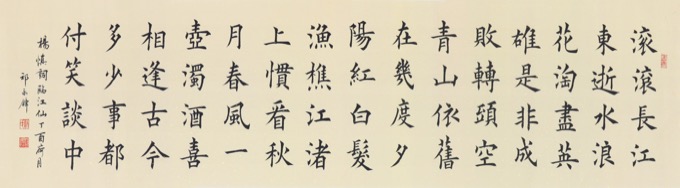 滾滾長江
東逝水浪
花淘盡英
雄是非成
敗轉頭空
青山依舊
在幾度夕
陽紅白髮
漁樵江渚
上慣看秋
月春風一
壺濁酒喜
相逢古今
多少事都
付笑談中
楊慎詞臨江仙丁酉月